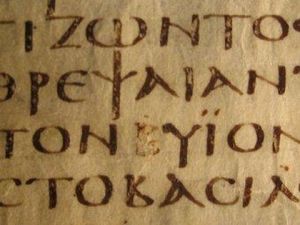 ΤΙΖΩΝΤΟϹ
ΘΡΕΨΑΙΑΝΤ
ΤΟΝ ΥΪΟΝ
ϹΤΟΒΑϹΙΛ